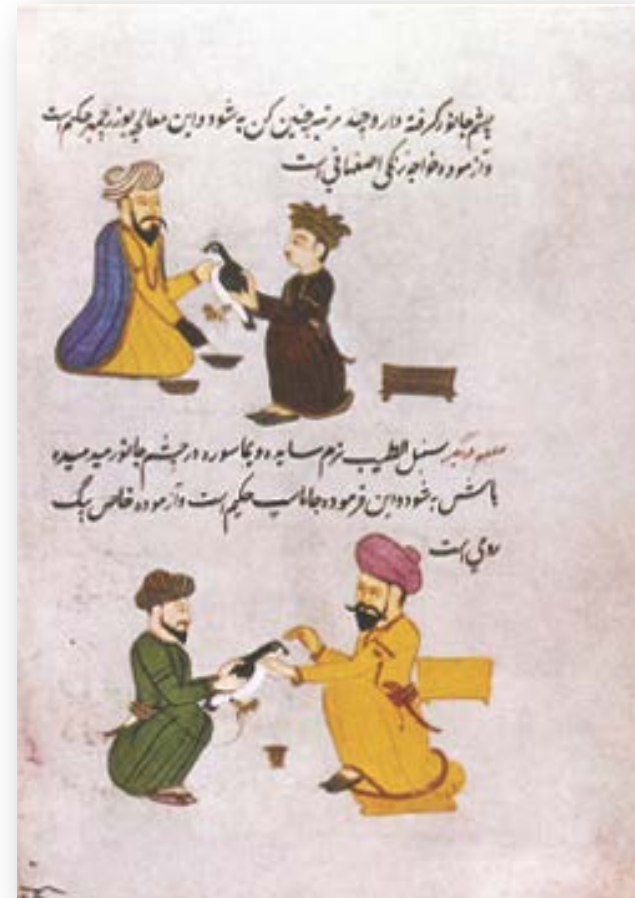 چشم جانور گرفته دار و چند مرتبه چنین کن به شود و این معالجه بوزرجمهر حکیم است
و آزموده خواجه زنکی اصفهانی است
سنبل الطیب نرم سایده و بماسوره در چشم جانور میدمیده
باشش به شود و این فرموده جاماسب حکیم است و آزموده خاص بیگ
رومی است